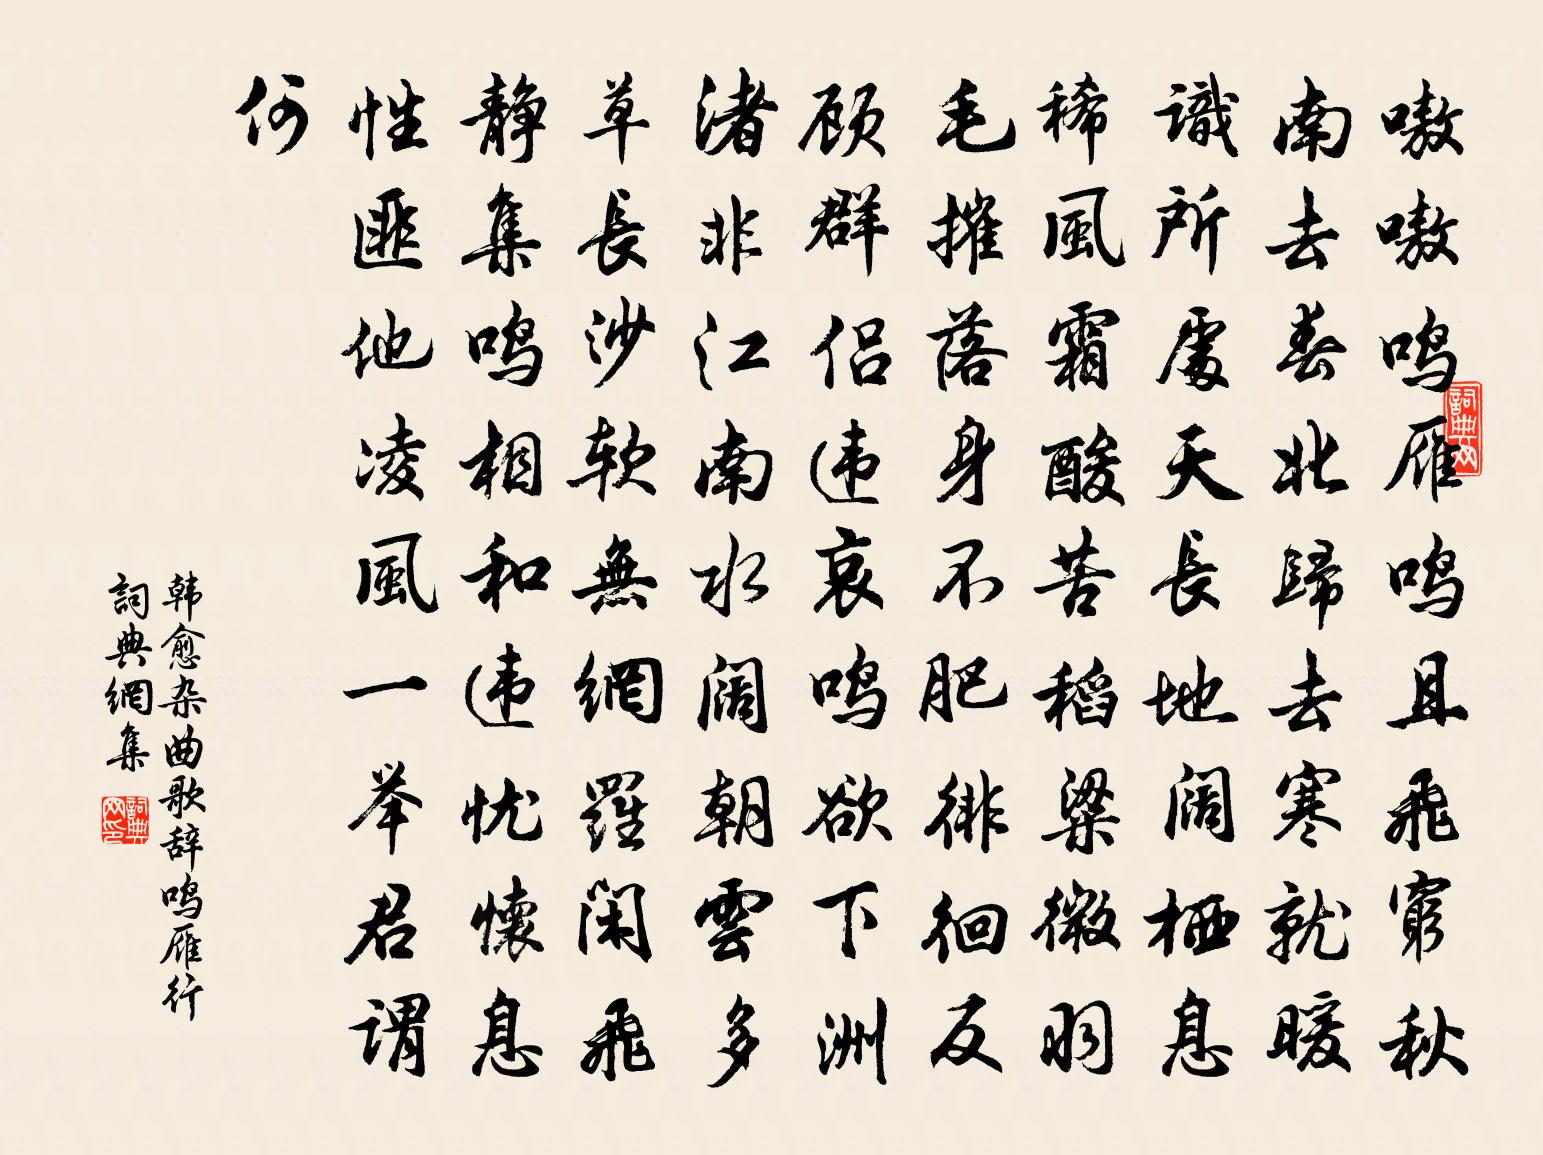 嗷嗷鸣雁鸣且飛窮秋
南去春北歸去寒就暖
識所處天長地阔栖息
稀風霜酸苦稻梁微羽
毛摧落身不肥徘徊反
顾群侣违哀鸣欲下洲
渚非江南水阔朝雲多
草長沙软無網羅闲飛
静集鸣相和违忧懷息
性匪他凌風一举君谓
何
韩愈杂曲歌辞鸣雁行
詞典網集
詞典网
詞典网印